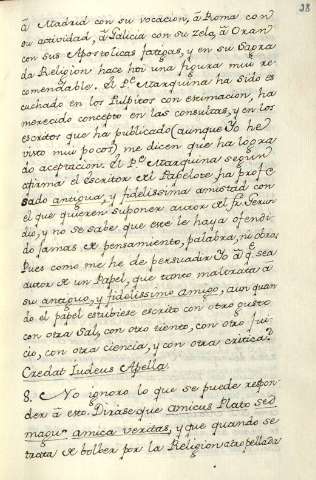 28
â Madrid con su vocacion, â Roma con
su actividad, â Galicia con su zelo, â Oran
con sus Apostolicas fatigas, y en su Sagra
da Religion hace hoi una figura mui re-
comendable. El Pe. Marquina ha sido es
cuchado en los Pulpitos con estimacion, ha
merecido concepto en las consultas, y en los
escritos que ha publicado (aunque Yo he
visto mui pocos) me dicen que ha logra
do aceptacion. El Pe. Marquina segun
afirma el escritor del Papelote ha profe
sado antigua, y fidelissima amistad con
el que quieren suponer autor del fr. Gerun
dio, y no se sabe que este le haya ofendi
do jamas de pensamiento, palabra, ni obra.
Pues como me he de persuadir Yo â qe. sea
autor de un Papel, que tanto maltrata â
su antiguo, y fidelissimo amigo, aun quan
do el papel estubiese escrito con otro gusto
con otra sal, con otro tiento, con otro jui
cio, con otra ciencia, y con otra critica?
Credat Iudeus Apella.
8. No ignoro lo que se puede respon-
der â esto. Dirase que amicus Plato sed
magis amica veritas, y que quando se
trata de bolber por la Religion atropellada